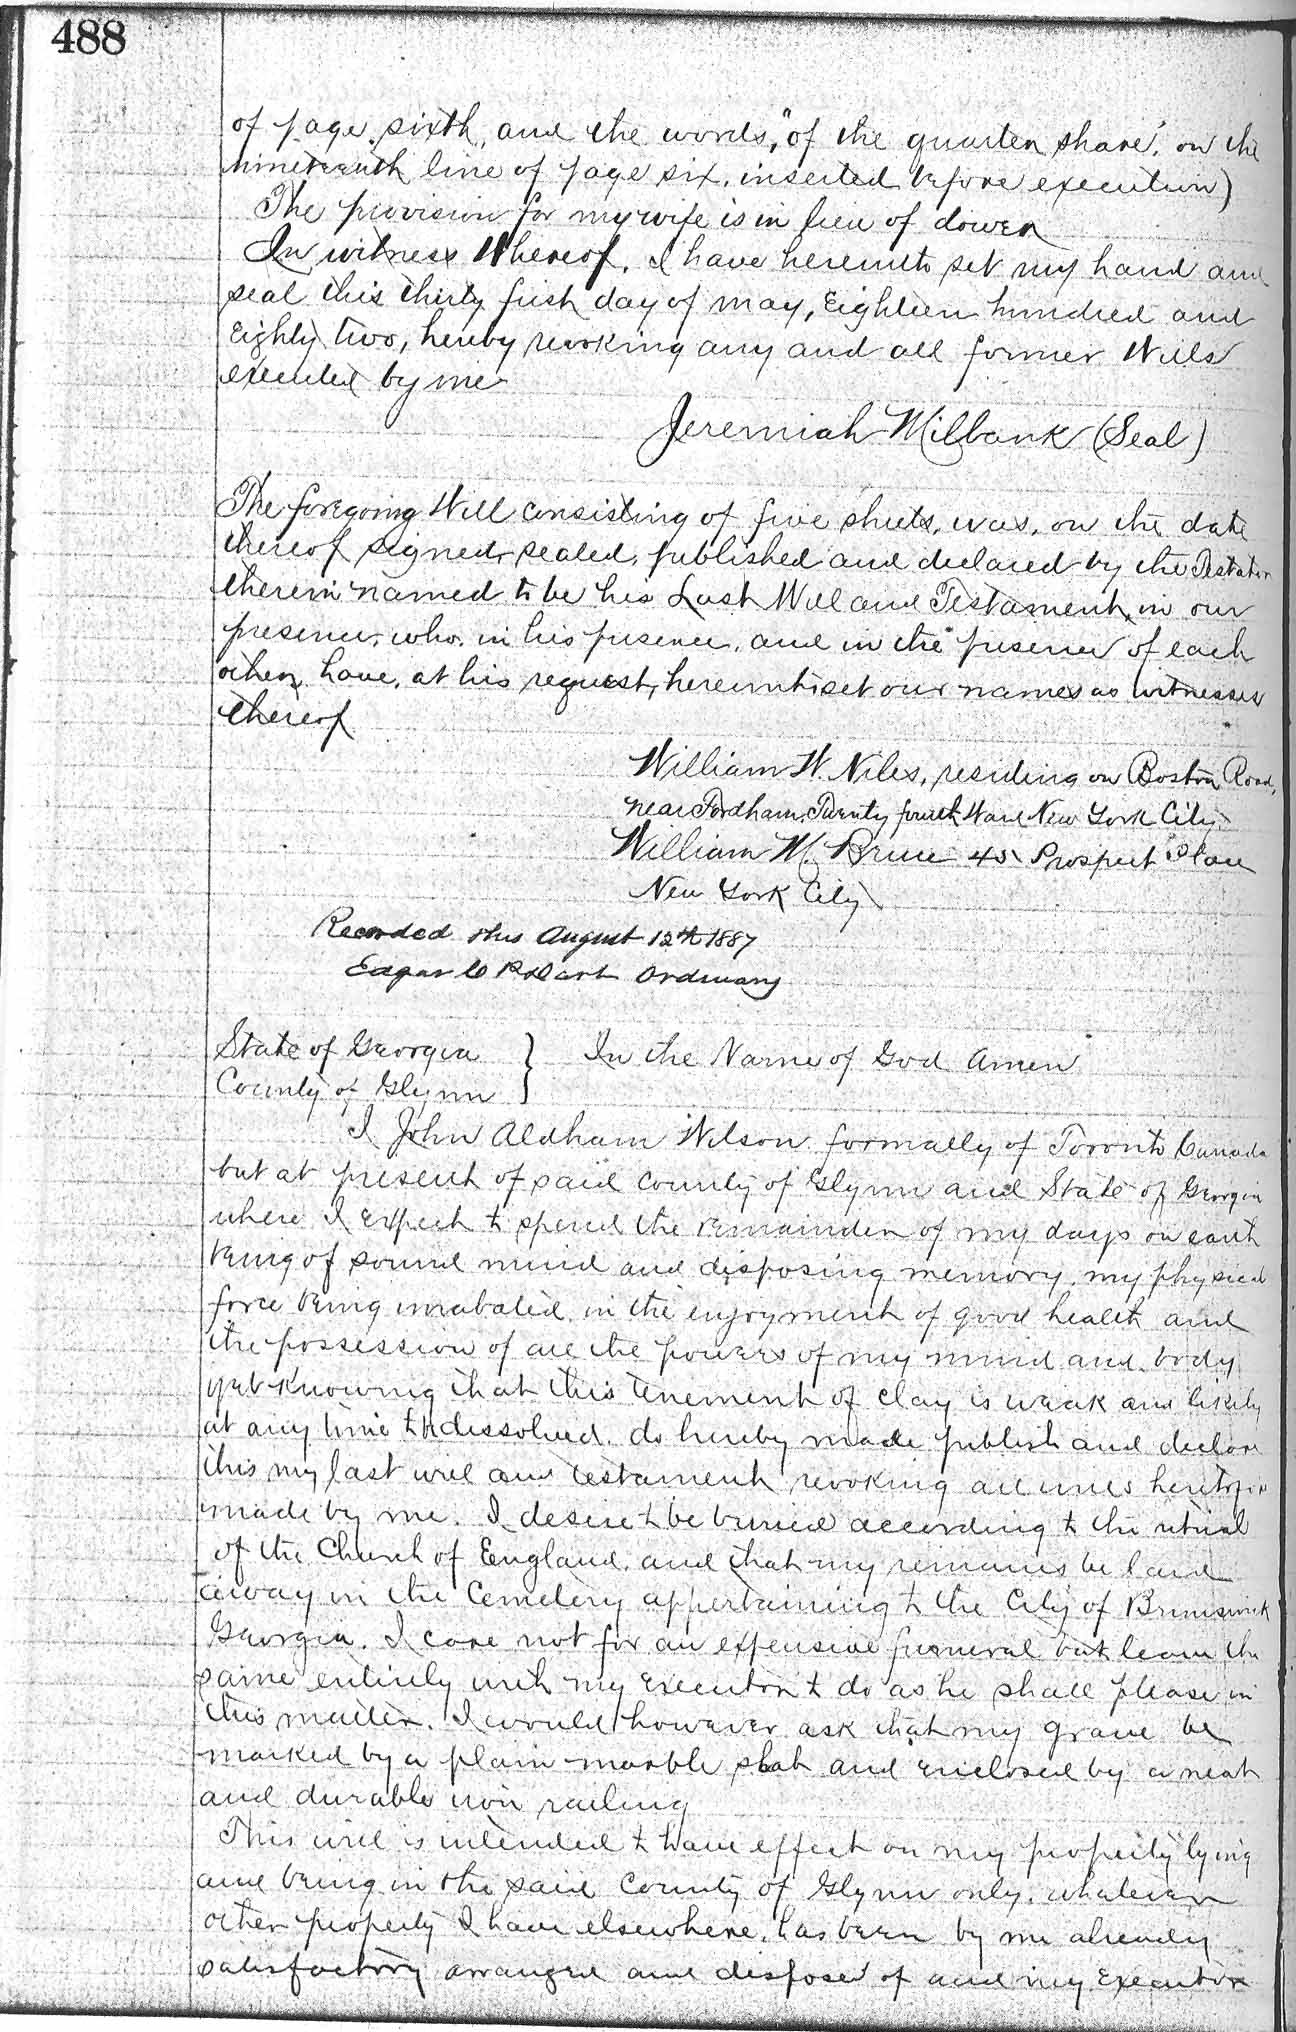 488
of page sixth, and the words, "of the quarter share", on the
nineteenth line of page six, inserted before execution)
The provision for my wife is in lieu of dower
In witness Whereof, I have hereunto set my hand and
seal this thirty first day of may, Eighteen hundred and
Eighty two, hereby revoking any and all former Wills
executed by me
Jeremiah Milbank (Seal)
The foregoing Will consisting of five sheets, was, on the date
thereof signed, sealed, published and declared by the Testator
therein named to be his Last Will and Testament, in our
presence, who, in his presence, and in the presence of each
other, have, at his request, hereunto set our names as witnesses
thereof
William W. Niles, residing on Boston Road,
near Fordham, Twenty fourth Ward New York City
William M. Bruce 45 Prospect Place
New York City
Recorded this August 12th 1887
Edgar C Ordinary
State of Georgia } In the Name of God Amen
County of Glynn
I John Aldham Wilson formally of Toronto Canada
but at present of said County of Glynn and State of Georgia
where I expect to spend the remainder of my days on earth
being of sound mind and disposing memory, my physical
force being unabated, in the enjoyment of good health and
the possession of all the powers of my mind and body
yet knowing that this tenement of clay is weak and likely
at any time to be dissolved, do hereby made publish and declare
this my last will and testament revoking all ones heretofore
made by me. I desire to be buried according to the ritual
of the Church of England, and that my remains be laid
away in the Cemetery appertaining to the City of Brunswick
Georgia. I care not for an expensive funeral but leave the
same entirely with my Executor to do as he shall please in
this matter. I would however ask that my grave be
marked by a plain marble slab and enclosed by a neat
and durable iron railing
This will is intended to have effect on my property lying
and being in the said County of Glynn only, whatever
other property I have elsewhere, has been by me already
satisfactory arranged and disposed of and my Executor